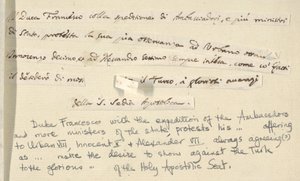 Il Duca Francesco colla spedizione di Ambasciadori, e più ministri
di Stato, protesta la sua
Innocenzo decimo, e ad Alesandro settimo sempre
il desiderio di mos in il Turco, i gloriosi
della S. Sedia Apostolica.
Duke Francesco with the expedition of the Ambassadors
and more ministers of the state protests his ... offering
to Urban VIII, Innocent X + Alexander VII, always agreeing(?)
as ... make the desire to show against the Turk
to the glorious ... of the Holy Apostolic Seat.